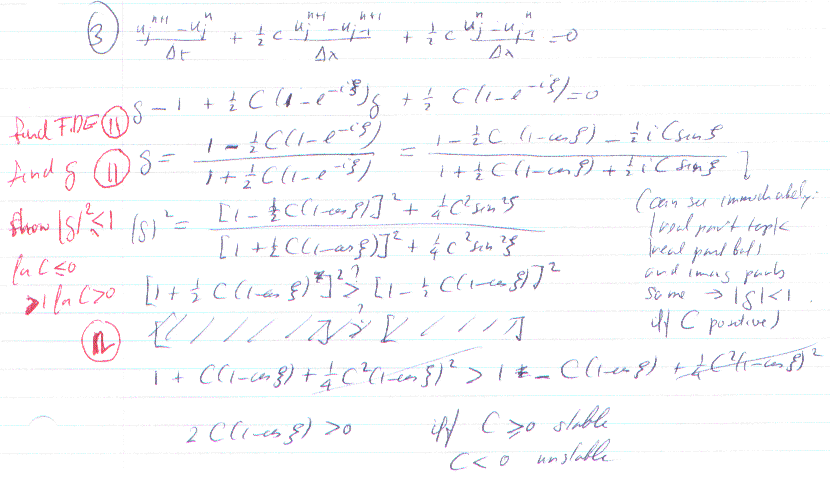 ③ \frac{u_j^{n+1} - u_j^n}{\Delta t} + \frac{1}{2} c \frac{u_j^{n+1} - u_{j-1}^{n+1}}{\Delta x} + \frac{1}{2} c \frac{u_j^n - u_{j-1}^n}{\Delta x} = 0
g - 1 + \frac{1}{2} C (1 - e^{-iξ}) g + \frac{1}{2} C (1 - e^{-iξ}) = 0
find FDE ⑪
find g ⑪ g = \frac{1 - \frac{1}{2} C (1 - e^{-iξ})}{1 + \frac{1}{2} C (1 - e^{-iξ})} = \frac{1 - \frac{1}{2} C (1 - cos ξ) - \frac{1}{2} i C sin ξ}{1 + \frac{1}{2} C (1 - cos ξ) + \frac{1}{2} i C sin ξ}
show |g|^2 ≤ 1 |g|^2 = \frac{[1 - \frac{1}{2} C (1 - cos ξ)]^2 + \frac{1}{4} C^2 sin^2 ξ}{[1 + \frac{1}{2} C (1 - cos ξ)]^2 + \frac{1}{4} C^2 sin^2 ξ}
for C ≤ 0
>1 for C > 0
(can see immediately:
real part top <
real part bott
and imag parts
same → |g| < 1
iff C positive)
[1 + \frac{1}{2} C (1 - cos ξ)]^2 ?> [1 - \frac{1}{2} C (1 - cos ξ)]^2
⑫
1 + C (1 - cos ξ) + \frac{1}{4} C^2 (1 - cos ξ)^2 > 1 - C (1 - cos ξ) + \frac{1}{4} C^2 (1 - cos ξ)^2
2 C (1 - cos ξ) > 0 iff C ≥ 0 stable
C < 0 unstable